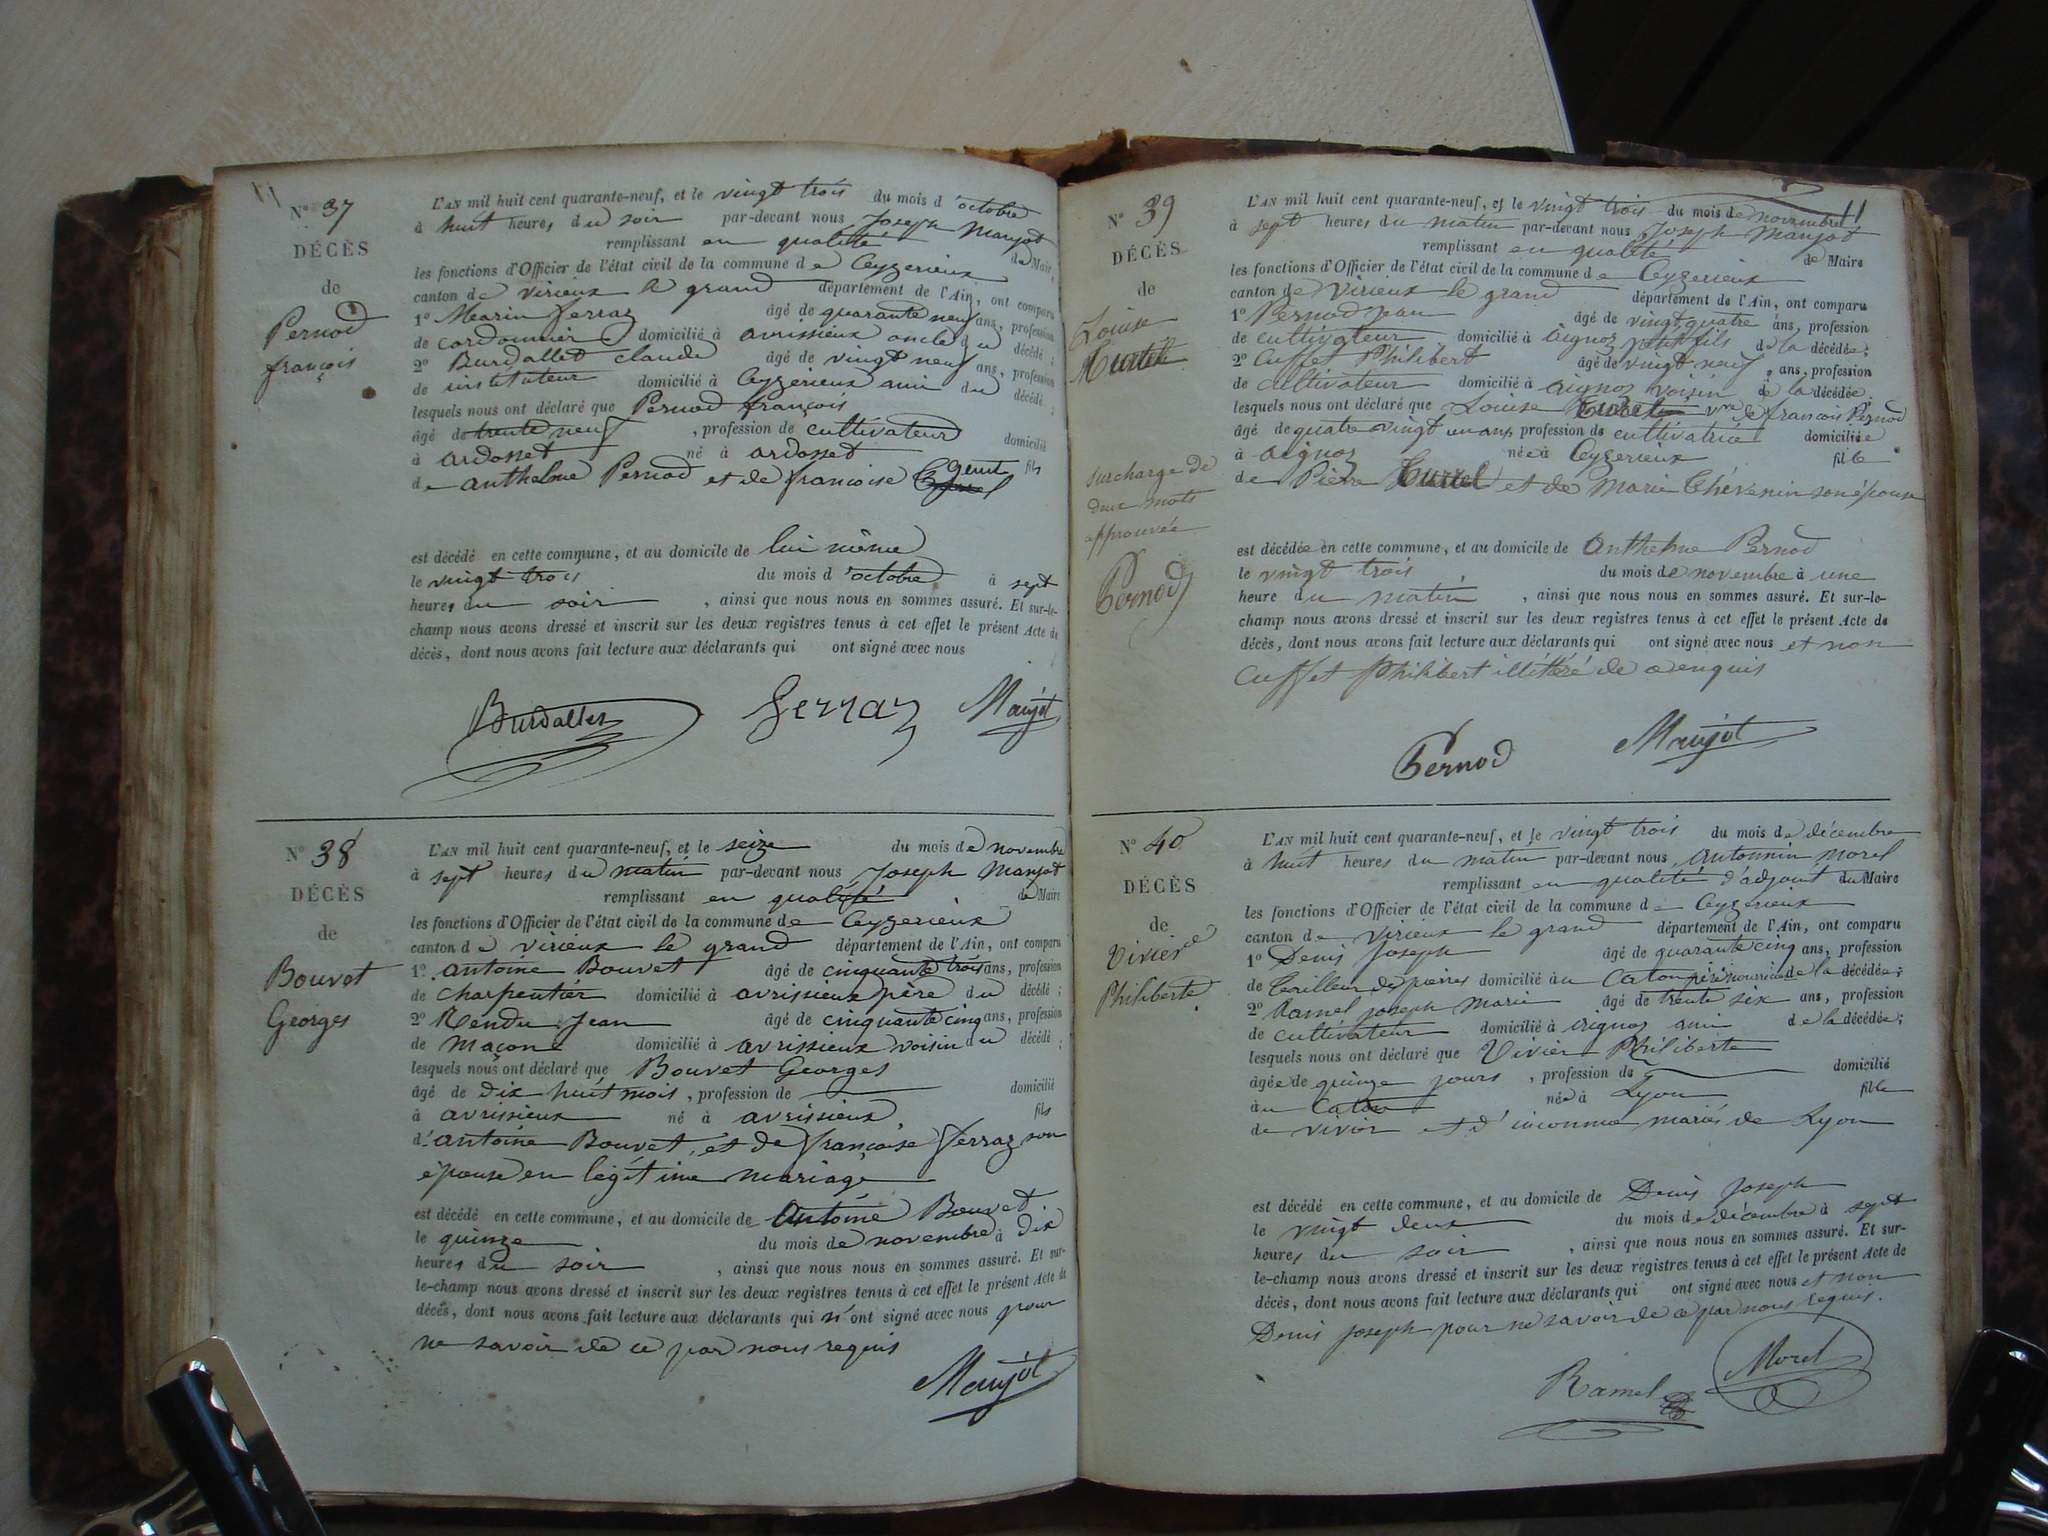 11
N° 37
DÉCÈS
de
Pernod
françois
L'AN mil huit cent quarante-neuf, et le vingt trois du mois d'octobre
à huit heures du soir par-devant nous Joseph Manjot
remplissant en qualité de Maire
les fonctions d'Officier de l'état civil de la commune de Ceyzerieux
canton de virieux le grand département de l'Ain, ont comparu
1° Marin ferraz âgé de quarante neuf ans, profession
de cordonnier domicilié à avrissieux oncle du décédé ;
2° Burdallet claude âgé de vingt neuf ans, profession
de instituteur domicilié à Ceyzerieux ami du décédé ;
lesquels nous ont déclaré que Pernod françois
âgé de trente neuf , profession de cultivateur domicilié
à ardosset né à ardosset fils
de anthelme Pernod et de françoise
est décédé en cette commune, et au domicile de lui même
le vingt trois du mois d'octobre à sept
heures du soir , ainsi que nous nous en sommes assuré. Et sur-le-
champ nous avons dressé et inscrit sur les deux registres tenus à cet effet le présent Acte de
décès, dont nous avons fait lecture aux déclarants qui ont signé avec nous
Burdallet Ferraz Manjot
N° 38
DÉCÈS
de
Bouvet
Georges
L'AN mil huit cent quarante-neuf, et le seize du mois de novembre
à sept heures du matin par-devant nous Joseph Manjot
remplissant en qualité de Maire
les fonctions d'Officier de l'état civil de la commune de Ceyzerieux
canton de virieux le grand département de l'Ain, ont comparu
1° antoine Bouvet âgé de cinquante trois ans, profession
de charpentier domicilié à avrissieux père du décédé ;
2° Rendu Jean âgé de cinquante cinq ans, profession
de maçon domicilié à avrissieux voisin du décédé ;
lesquels nous ont déclaré que Bouvet Georges
âgé de dix huit mois , profession de domicilié
à avrissieux né à avrissieux fils
d'antoine Bouvet, et de françoise ferraz son
épouse en légitime mariage
est décédé en cette commune, et au domicile de Antoine Bouvet
le quinze du mois de novembre à dix
heures du soir , ainsi que nous nous en sommes assuré. Et sur-
le-champ nous avons dressé et inscrit sur les deux registres tenus à cet effet le présent Acte de
décès, dont nous avons fait lecture aux déclarants qui n'ont signé avec nous pour
ne savoir de ce par nous requis
Manjot
11
N° 39
DÉCÈS
de
Louise
Curtel
surcharge de
deux mots
approuvée
Pernod
L'AN mil huit cent quarante-neuf, et le vingt trois du mois de novembre
à sept heures du matin par-devant nous Joseph Manjot
remplissant en qualité de Maire
les fonctions d'Officier de l'état civil de la commune de Ceyzerieux
canton de virieux le grand département de l'Ain, ont comparu
1° Pernod jean âgé de vingt quatre ans, profession
de cultivateur domicilié à aignoz petit fils de la décédée ;
2° Cuffet Philibert âgé de vingt neuf , ans, profession
de cultivateur domicilié à aignoz voisin de la décédée.
lesquels nous ont déclaré que Louise Curtel vve de francois Pernod
âgé de quatre vingt un ans, profession de cultivatrice domiciliée
à aignoz née à Ceyzerieux fille
de Pierre Curtel et de Marie Chévenin son épouse
est décédée en cette commune, et au domicile de anthelme Pernod
le vingt trois du mois de novembre à une
heure du matin , ainsi que nous nous en sommes assuré. Et sur-le-
champ nous avons dressé et inscrit sur les deux registres tenus à cet effet le présent Acte de
décès, dont nous avons fait lecture aux déclarants qui ont signé avec nous et non
Cuffet Philibert illétéré de ce enquis
Pernod Manjot
N° 40
DÉCÈS
de
Vivier
Philiberte
L'AN mil huit cent quarante-neuf, et le vingt trois du mois de décembre
à huit heures du matin par-devant nous Antonnin morel
remplissant en qualité d'adjoint du Maire
les fonctions d'Officier de l'état civil de la commune de Ceyzerieux
canton de virieux le grand département de l'Ain, ont comparu
1° Denis Joseph âgé de quarante cinq ans, profession
de tailleur de pierres domicilié au Caton père nourricier de la décédée ;
2° Ramel joseph marie âgé de trente six ans, profession
de cultivateur domicilié à aignoz ami de la décédée ;
lesquels nous ont déclaré que Vivier Philiberte
âgée de quinze jours , profession de domicilié
au Caton née à Lyon fille
de vivier et d'inconnue mariés de Lyon
est décédé en cette commune, et au domicile de Denis Joseph
le vingt deux du mois de décembre à sept
heures du soir , ainsi que nous nous en sommes assuré. Et sur-
le-champ nous avons dressé et inscrit sur les deux registres tenus à cet effet le présent Acte de
décès, dont nous avons fait lecture aux déclarants qui ont signé avec nous et non
Denis joseph pour ne savoir de ce par nous requis.
Ramel Morel